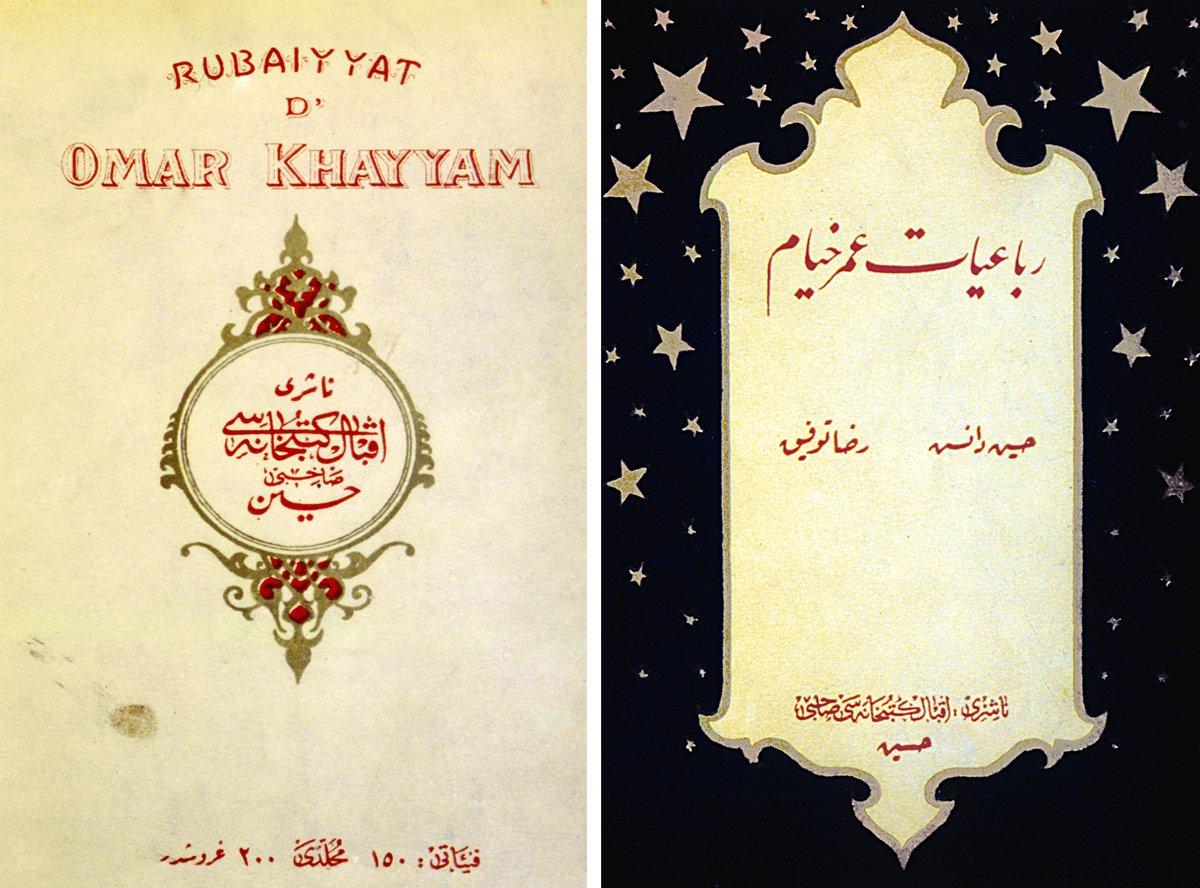 RUBAIYYAT
D'
OMAR KHAYYAM
ناشری
اقبال کتبخانه‌سی
صاحبی
حسین
فیئاتی : ١٥٠ مجلدی ٢٠٠ غروشدر
رباعیات عمر خیام
حسین دانش رضا توفیق
ناشری : اقبال کتبخانه‌سی صاحبی
حسین